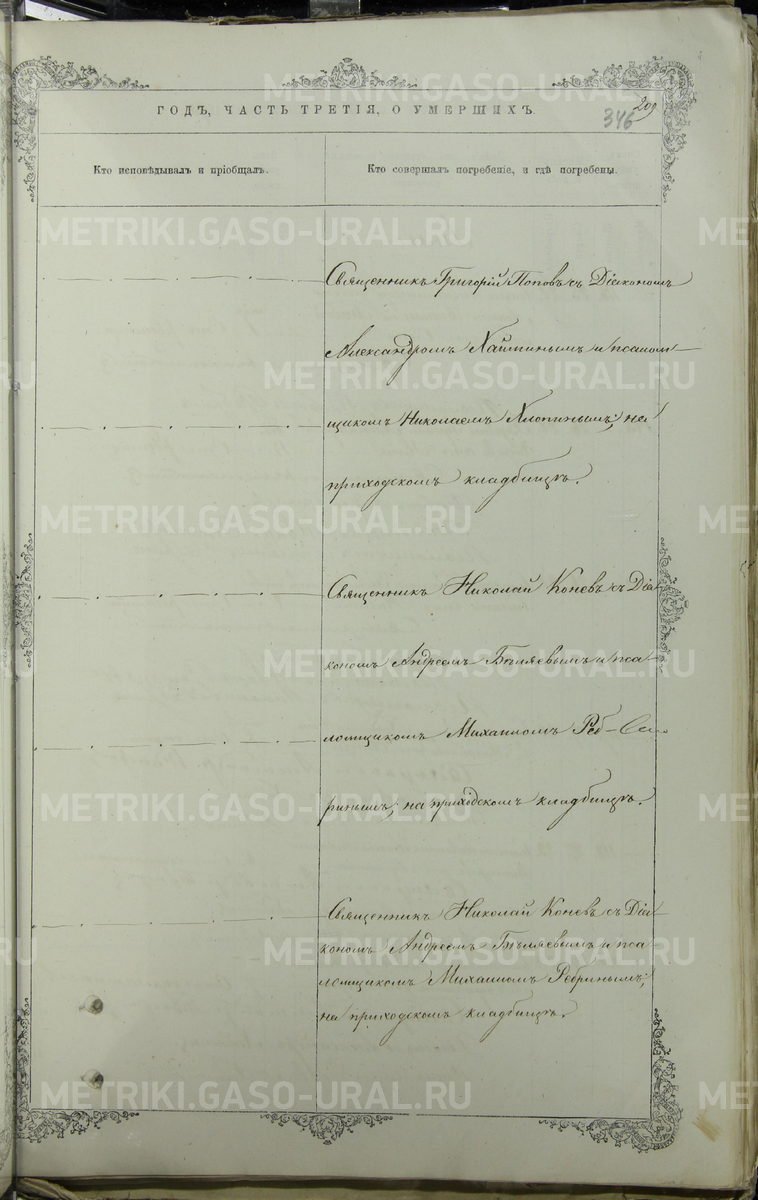 METRIKI.GASO-URAL.RU
ГОДЪ, ЧАСТЬ ТРЕТІЯ, О УМЕРШИХЪ.
209
346
Кто исповѣдывалъ и пріобщалъ.
Кто совершалъ погребеніе, и гдѣ погребены.
Священникъ Григорій Поповъ съ Діакономъ
Александромъ и псалом-
щикомъ Николаемъ Хлопинымъ; на
приходскомъ кладбищѣ.
Священникъ Николай Коневъ съ Діа-
кономъ Андреемъ Бѣляевымъ и пса-
ломщикомъ Михаиломъ
риным; на приходскомъ кладбищѣ.
Священникъ Николай Коневъ съ Діа-
кономъ Андреемъ Бѣляевымъ и пса-
ломщикомъ Михаиломъ Ребринымъ;
на приходскомъ кладбищѣ.